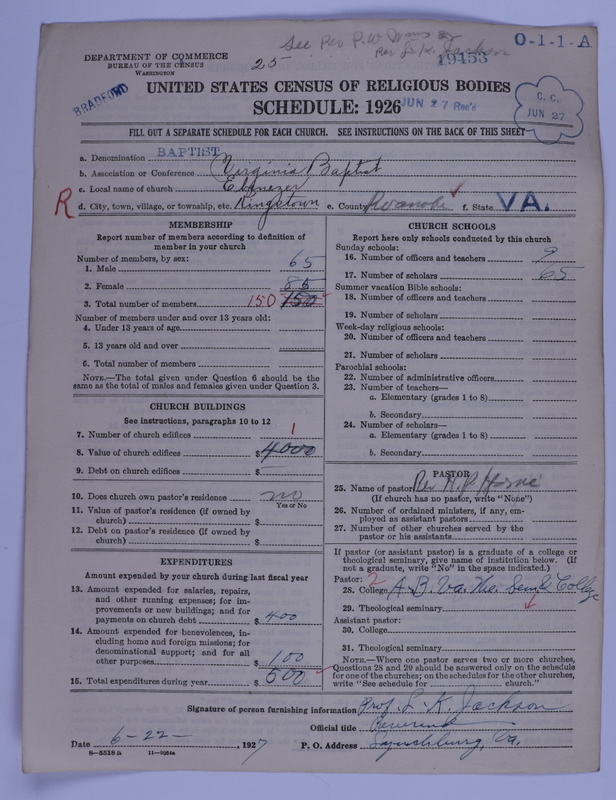 See Rev P. W. by
Rev L. K. Jackson
O-1-1-A
25
19453
DEPARTMENT OF COMMERCE
BUREAU OF THE CENSUS
WASHINGTON
BRADFORD
UNITED STATES CENSUS OF RELIGIOUS BODIES
SCHEDULE: 1926
JUN 27 Rec'd
C. C.
JUN 27
FILL OUT A SEPARATE SCHEDULE FOR EACH CHURCH. SEE INSTRUCTIONS ON THE BACK OF THIS SHEET
a. Denomination BAPTIST
b. Association or Conference Virginia Baptist
c. Local name of church Ebenezer
R d. City, town, village, or township, etc. Kingstown e. County Roanoke f. State VA.
MEMBERSHIP
Report number of members according to definition of
member in your church
Number of members, by sex:
1. Male 65
2. Female 85
3. Total number of members 150 150
Number of members under and over 13 years old:
4. Under 13 years of age
5. 13 years old and over
6. Total number of members
NOTE.—The total given under Question 6 should be the
same as the total of males and females given under Question 3.
CHURCH BUILDINGS
See instructions, paragraphs 10 to 12
7. Number of church edifices 1
8. Value of church edifices $4000
9. Debt on church edifices $
10. Does church own pastor's residence no
Yes or No
11. Value of pastor's residence (if owned by
church) $
12. Debt on pastor's residence (if owned by
church) $
EXPENDITURES
Amount expended by your church during last fiscal year
13. Amount expended for salaries, repairs,
and other running expenses; for im-
provements or new buildings; and for
payments on church debt $400
14. Amount expended for benevolences, in-
cluding home and foreign missions; for
denominational support; and for all
other purposes $100
15. Total expenditures during year $500
CHURCH SCHOOLS
Report here only schools conducted by this church
Sunday schools:
16. Number of officers and teachers 9
17. Number of scholars 65
Summer vacation Bible schools:
18. Number of officers and teachers
19. Number of scholars
Week-day religious schools:
20. Number of officers and teachers
21. Number of scholars
Parochial schools:
22. Number of administrative officers
23. Number of teachers—
a. Elementary (grades 1 to 8)
b. Secondary
24. Number of scholars—
a. Elementary (grades 1 to 8)
b. Secondary
PASTOR
25. Name of pastor Rev H. P.
(If church has no pastor, write "None")
26. Number of ordained ministers, if any, em-
ployed as assistant pastors
27. Number of other churches served by the
pastor or his assistants
If pastor (or assistant pastor) is a graduate of a college or
theological seminary, give name of institution below. (If
not a graduate, write "No" in the space indicated.)
Pastor: 2
28. College A. B. Va. The. Sem & College
29. Theological seminary
Assistant pastor:
30. College
31. Theological seminary
NOTE.—Where one pastor serves two or more churches,
Questions 28 and 29 should be answered only on the schedule
for one of the churches; on the schedules for the other churches,
write "See schedule for church."
Signature of person furnishing information Prof. L. K. Jackson
Official title Reverend
Date 6-22-, 1927 P. O. Address Lynchburg, Va.
8-5518 a 11-9064a